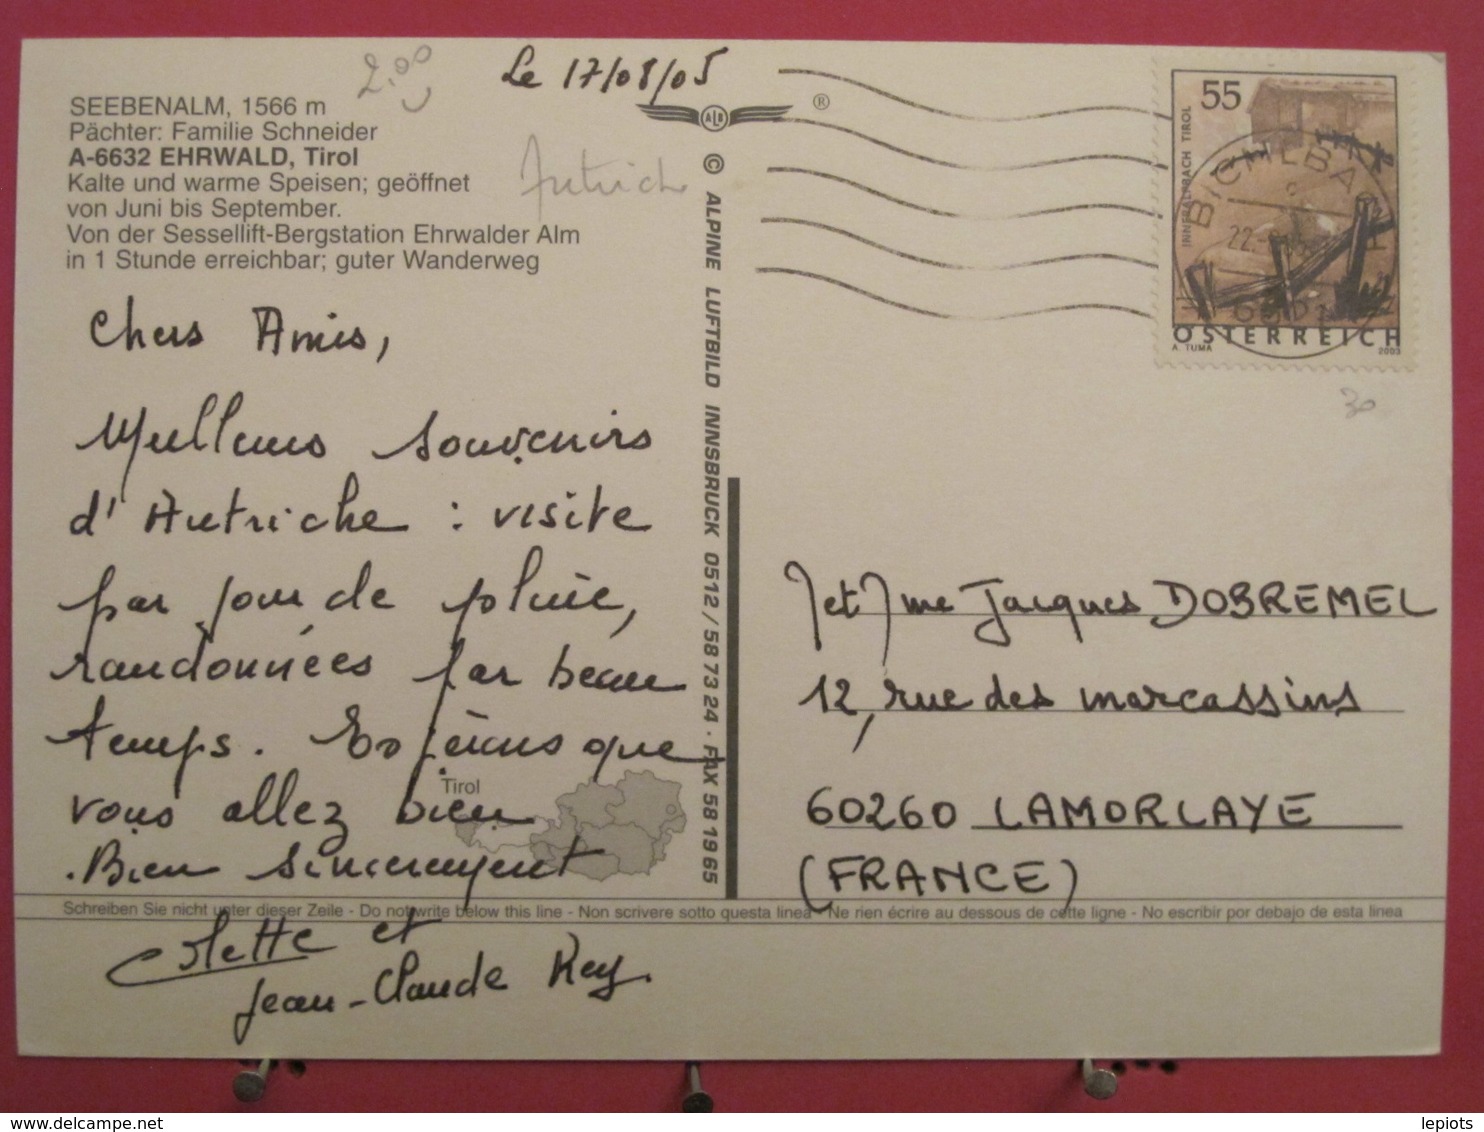 2.00
Le 17/08/05
SEEBENALM, 1566 m
Pächter: Familie Schneider
A-6632 EHRWALD, Tirol
Kalte und warme Speisen; geöffnet
von Juni bis September.
Von der Sessellift-Bergstation Ehrwalder Alm
in 1 Stunde erreichbar; guter Wanderweg
Autriche
Chers Amis,
Meilleurs souvenirs
d'Autriche : visite
par jour de pluie,
randonnées par beau
temps. Espérons que
vous allez bien
. Bien sincèrement
Colette et
Jean-Claude Rey.
Tirol
ALB ®
© ALPINE LUFTBILD INNSBRUCK 0512 / 58 73 24 · FAX 58 19 65
55
INNERALPBACH TIROL
ÖSTERREICH
A. TUMA 2003
BICHLBACH
30
M et Mme Jacques DOBREMEL
12, rue des marcassins
60260 LAMORLAYE
(FRANCE)
Schreiben Sie nicht unter dieser Zeile - Do not write below this line - Non scrivere sotto questa linea - Ne rien écrire au dessous de cette ligne - No escribir por debajo de esta linea
www.delcampe.net
lepiots